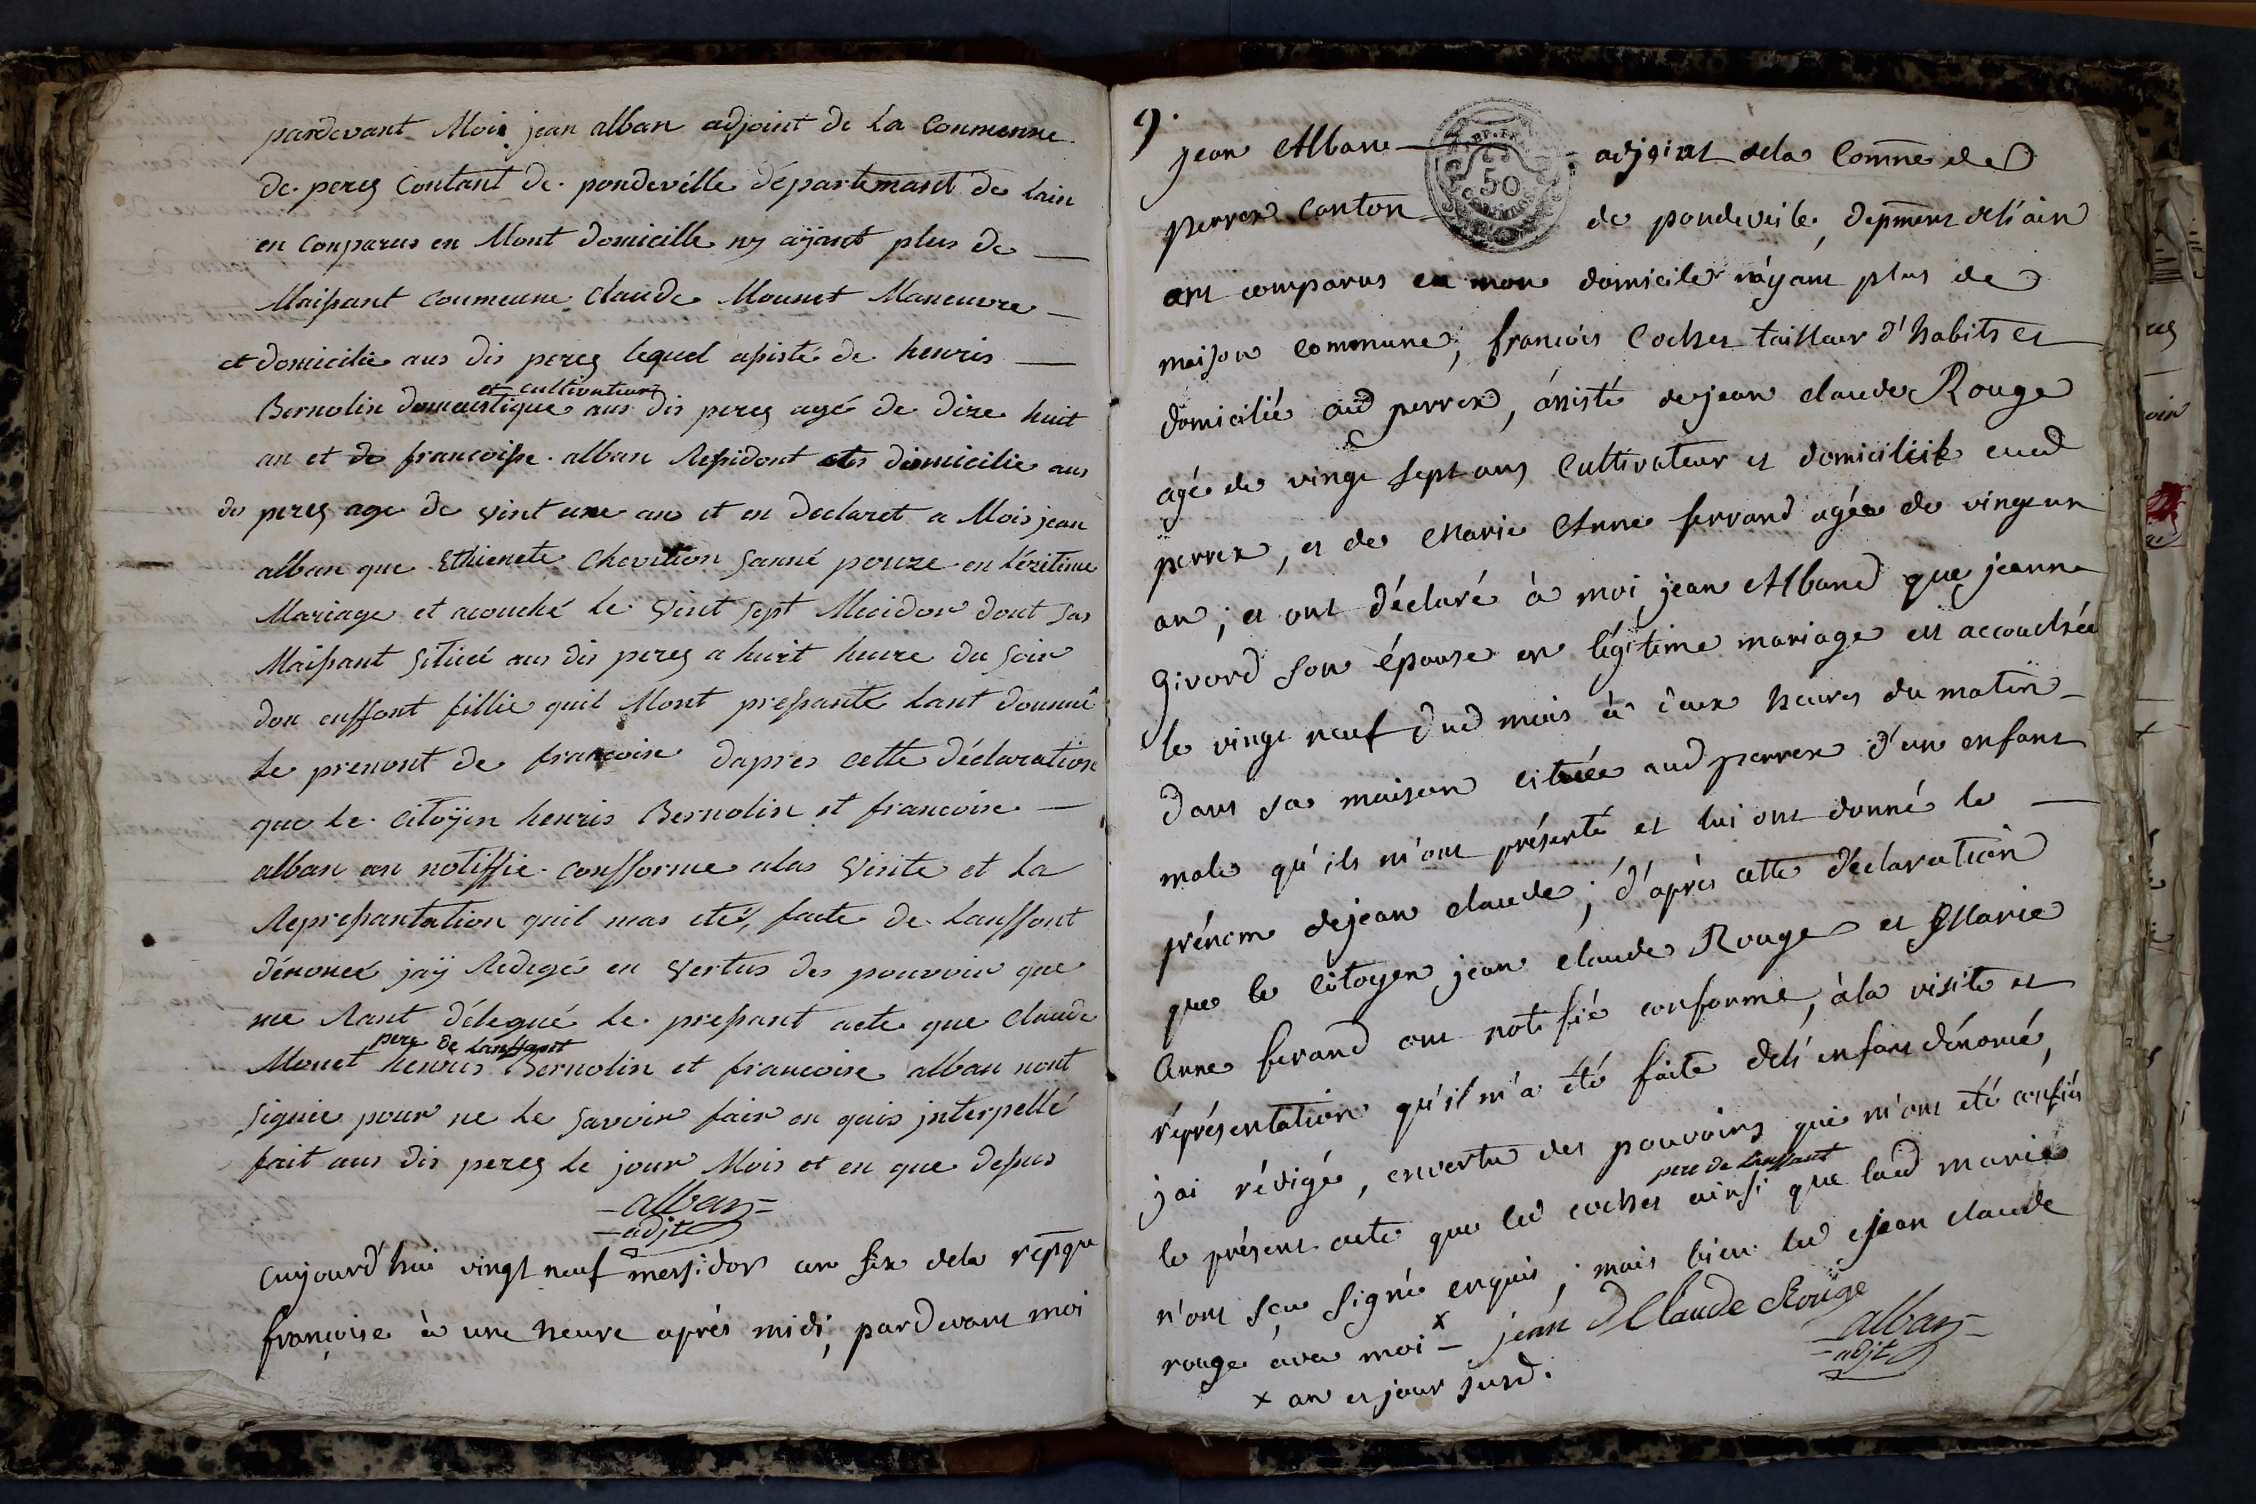 pardevant Mois jean alban adjoint de la Coumenne
de perex Contant de pondeville départemant de lain
en Conparus en Mont domicille ny aÿant plus de —
Maissant coumeune Claude Mounet Maneuvre —
et domicilié aus dis perex lequel asisté de henris —
et cultivateur
Bernolin domeustique aus dis perex agé de dixe huit
an et de francoisse alban Ressidont et domicilie aus
dis perex age de vint une ans et en declaret a Mois jean
alban que Ethienete Chevition sanné pouze en lézitime
Mariage et acouché le vint sept Mecidor dont sas
Maissant sitüeé aus dis perex a huit heure du soir
don enffont fillie quil Mont pressanté lant donnué
le prenont de francoise dapres cette déclaration
que le Citoÿen henris Bernolin et francoise —
alban an notiffie consforme alas visite et la
Represantation quil mas eté, faete de lanffont
dénomeé jaÿ Redegé en vertus des pouvoir que
me Rant délegué le pressant acte que Claude
pere de lanffant
Monet henris Bernolin et francoise alban nont
signie pour ne le savoir fair en quis interpellé
fait aus dis perex le jour Mois et en que dessus
— alban —
— adjt
aujourd'hui vingt neuf messidor an six dela repque
françoise à une heure après midi, pardevant moi
9.
jean Alban — adjoint dela Comne de
BP. FR.
50
CENTIMES
perrex canton — de pondeveile, depment del'ain
ont comparus en mon domicile n'ÿant plus de
maison commune, francois Cochet tailleur d'habits et
domicilié aud perrex, assisté dejean claude Rouge
agé de vingt sept ans Cultivateur et domicilié aud
perrex, et de Marie Anne ferrand agée de vingt un
an; et ont déclaré à moi jean Alband que jeanne
Givord son épouse en légitime mariage est accouchée
le vingt neuf dud mois à deux heures du matin —
dans sa maison cituée aud perrex d'un enfant
male qu'ils m'ont présenté et lui ont donné le —
prénom dejean claude; d'après cette déclaration
que le Citoyen jean claude Rouge et Marie
Anne ferand ont notifié conforme, àla visite et
réprésentation qu'il m'a été faite del'enfant dénomé,
j'ai rédigé, envertu des pouvoirs qui m'ont été confiés
pere de lanffant
le présent acte que led cochet ainsi que lad marie
n'ont sçu signé enquis, mais bien led jean claude
rouge avec moi x — jean Claude Rouge
— alban —
— adjt
x an et jour susd.